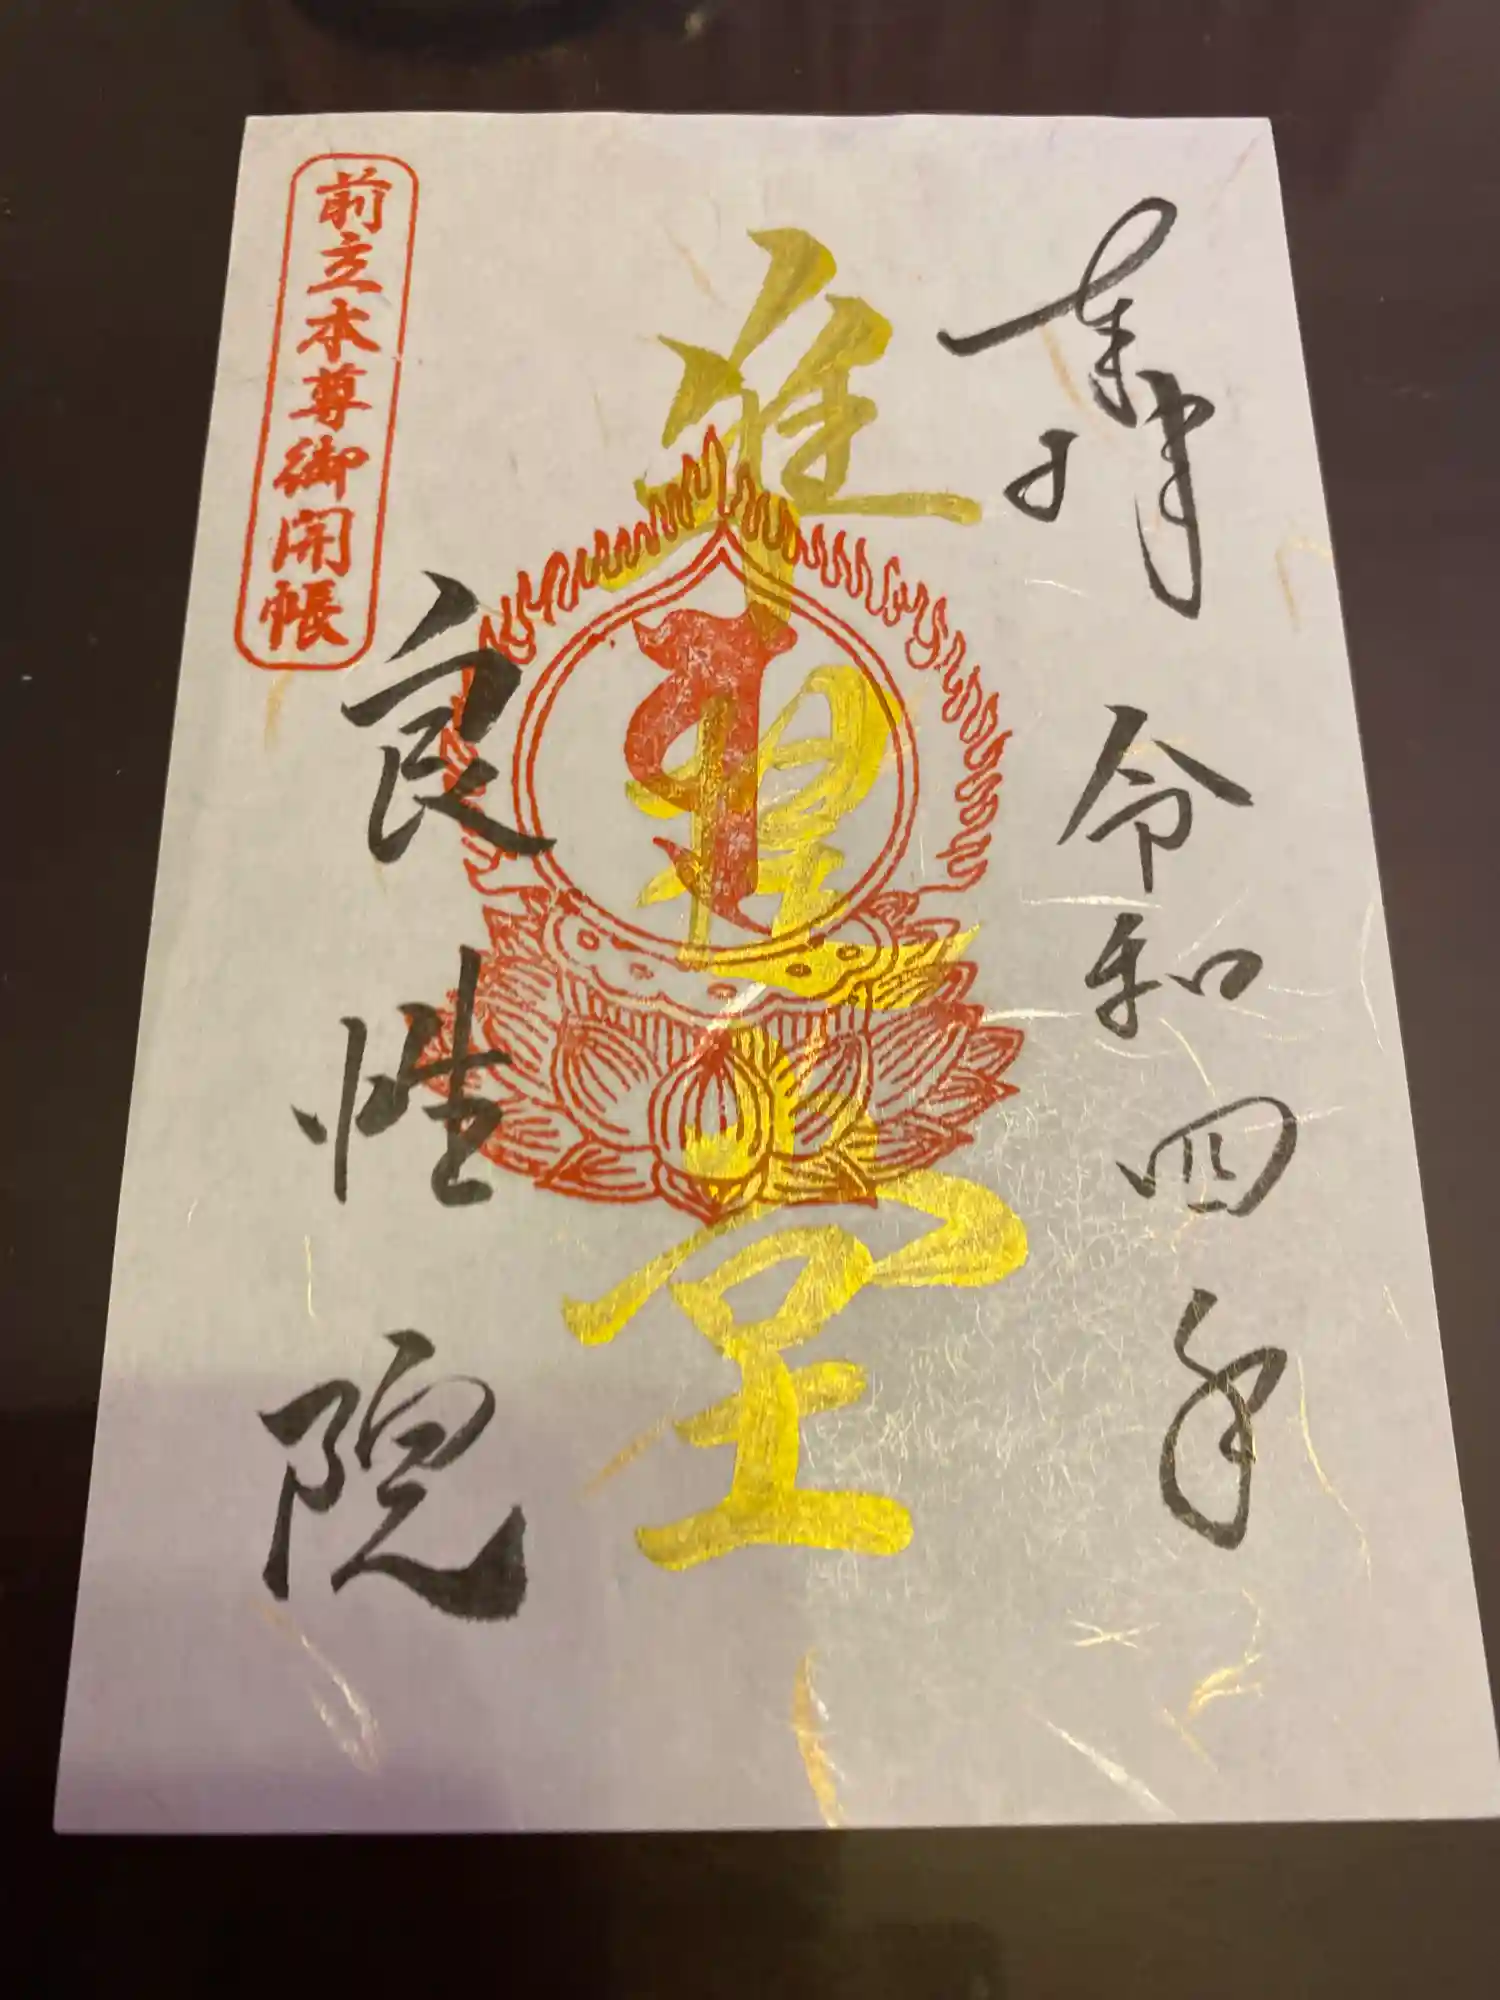 奉拝 令和四年
準提堂
良性院
前立本尊御開帳